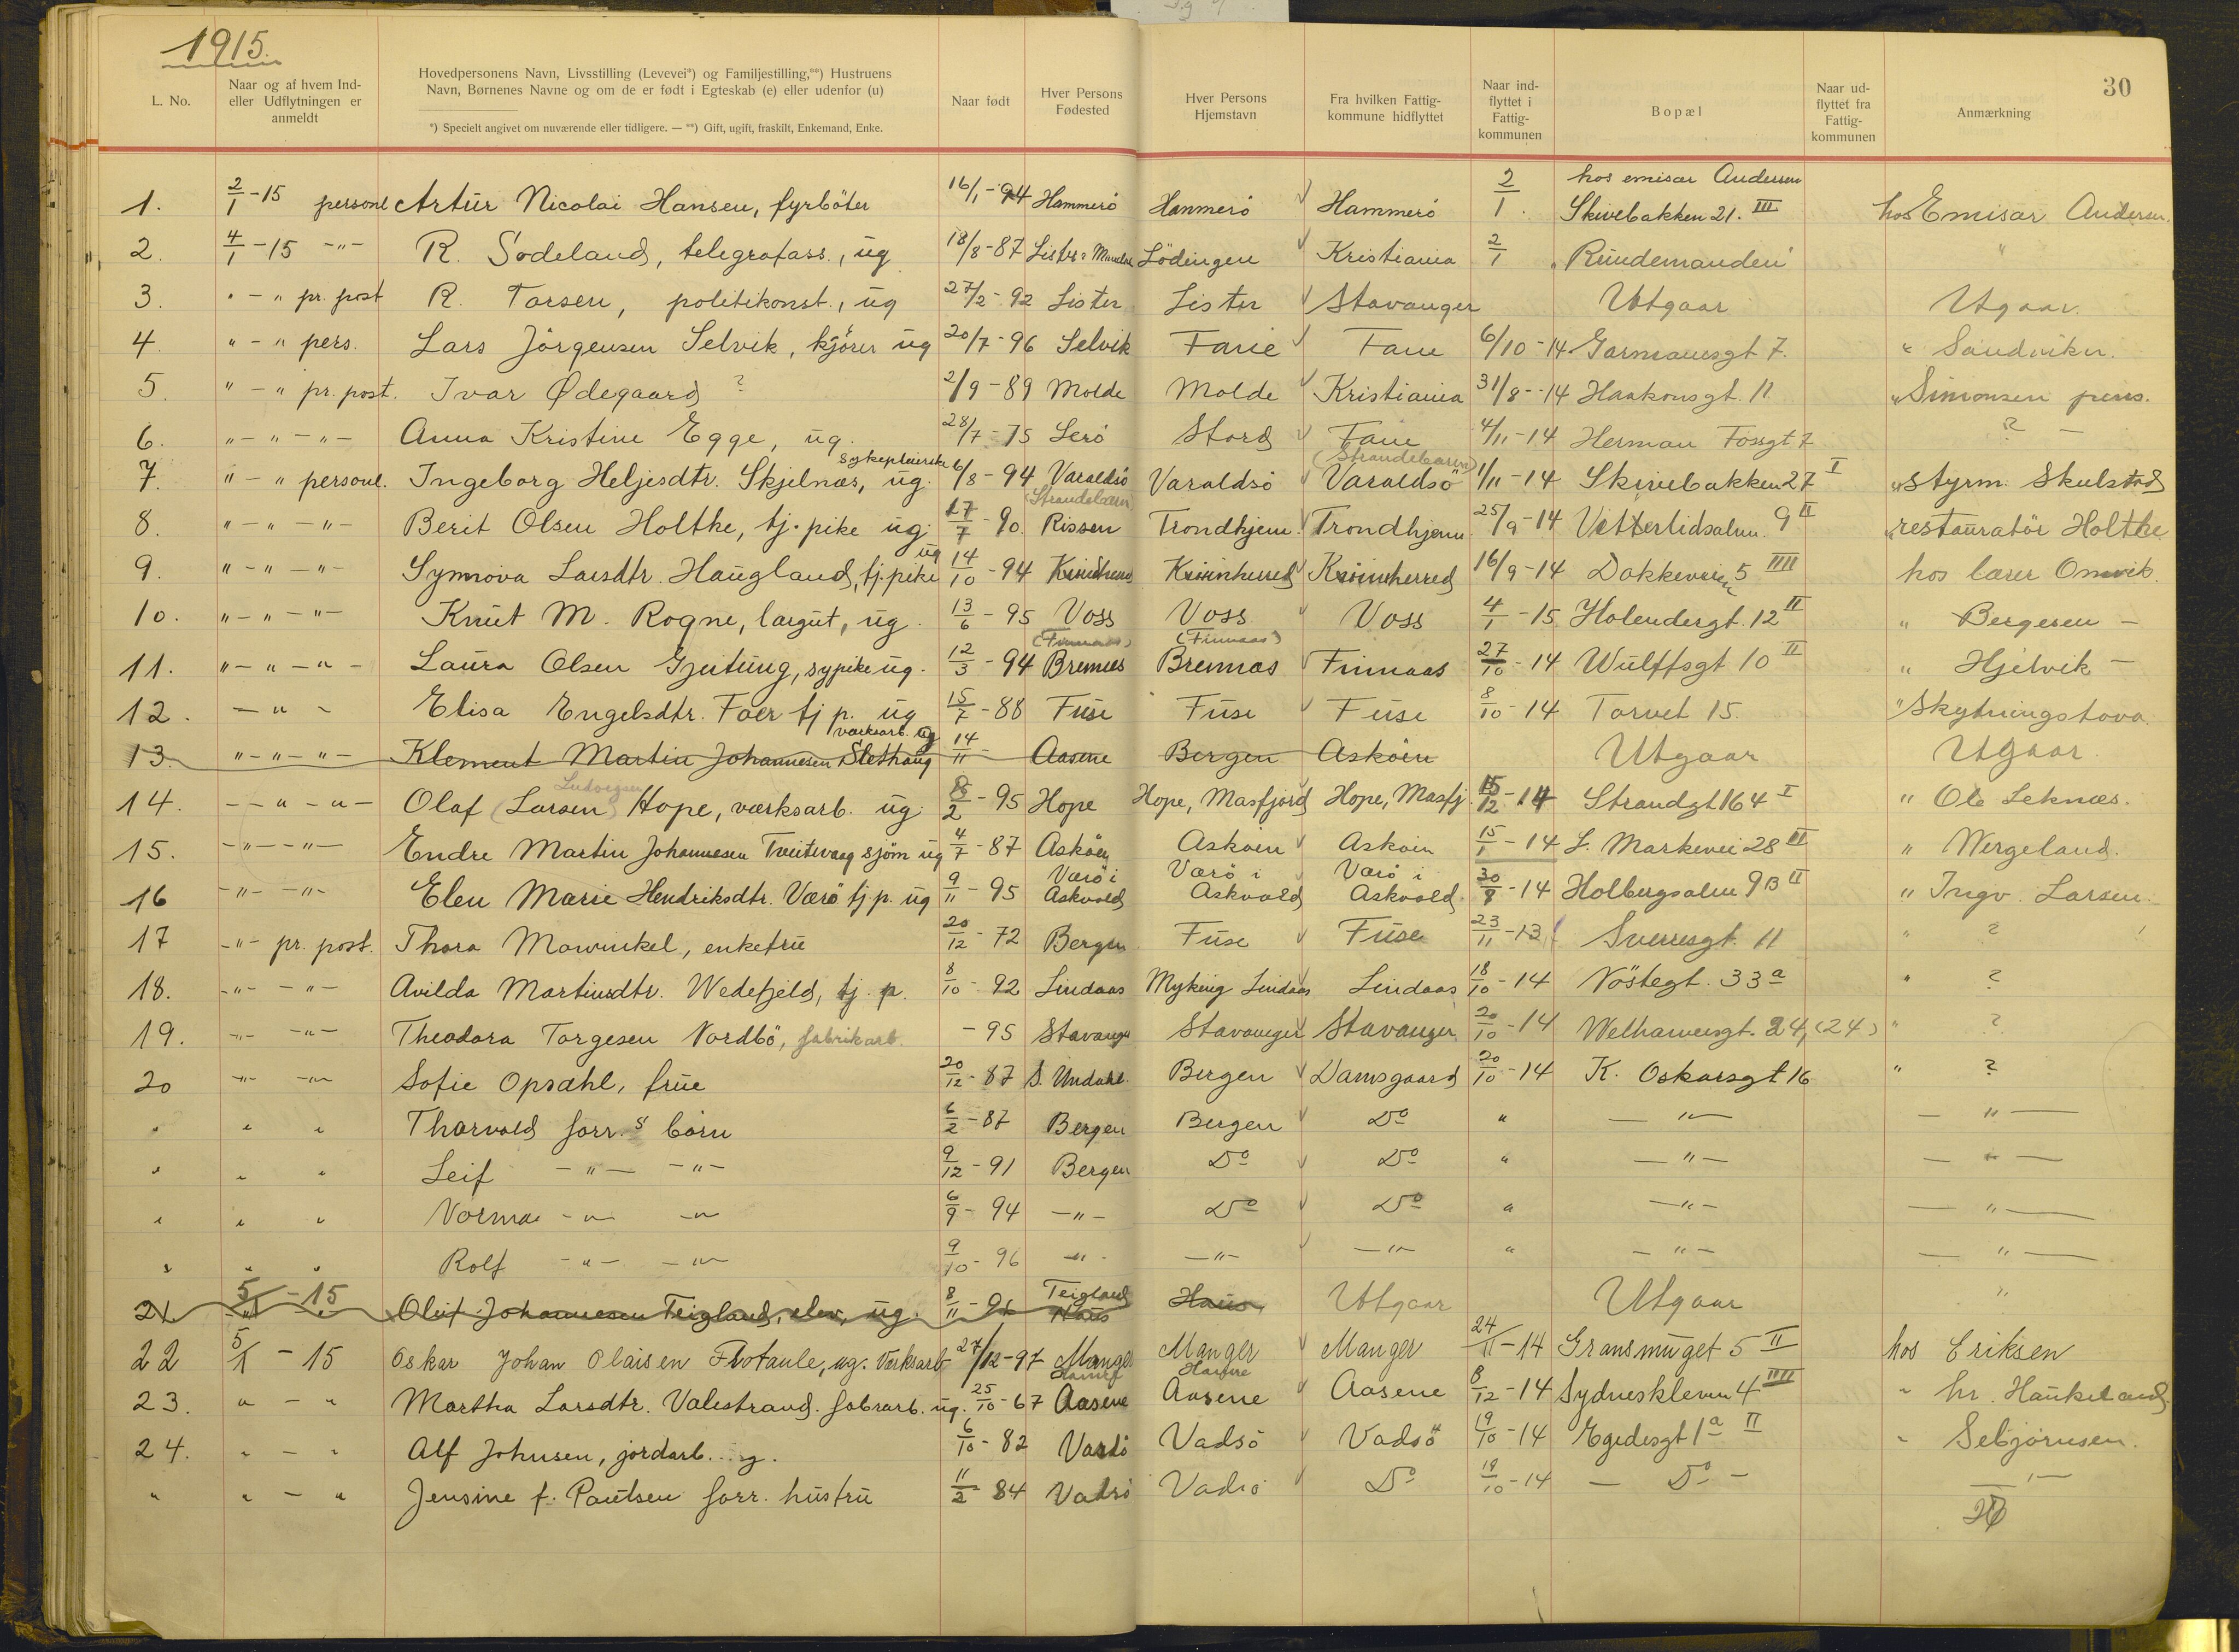 1915.
30
L. No.
Naar og af hvem Ind- eller Udflytningen er anmeldt
Hovedpersonens Navn, Livsstilling (Levevei*) og Familjestilling,**) Hustruens Navn, Børnenes Navne og om de er født i Egteskab (e) eller udenfor (u)
*) Specielt angivet om nuværende eller tidligere. — **) Gift, ugift, fraskilt, Enkemand, Enke.
Naar født
Hver Persons Fødested
Hver Persons Hjemstavn
Fra hvilken Fattigkommune hidflyttet
Naar indflyttet i Fattigkommunen
Bopæl
Naar udflyttet fra Fattigkommunen
Anmærkning
hos emisær Andersen
1. 2/1-15 personl Artur Nicolai Hansen, fyrböter 16/1-94 Hammerö Hammerö Hammerö 2/1. Skivebakken 21. III hos Emisær Andersen.
2. 4/1-15 -"- R. Södeland, telegrafass., ug 18/8-87 Lödingen Kristiania 2/1 "Rundemanden" "
3. " - " pr. post R. Torsen, politikonst., ug 27/2-92 Lister Lister Stavanger Utgaar Utgaar.
4. " - " pers. Lars Jörgensen Selvik, kjörer ug 20/7-96 Selvik Fane Fane 6/10-14 Garmansgt 7. " Sandviken.
5. " - " pr. post. Ivar Ødegaard ? 2/9-89 Molde Molde Kristiania 31/8-14 Haakonsgt. 11 " Simonsen pens.
6. "-"-"- Anna Kristine Egge, ug. 28/7-75 Lerö Stord Fane 4/11-14 Herman Fossgt 7 ? -
sykepleierske (Strandebarm)
7. " - " personl. Ingeborg Heljesdtr. Skjelnæs, ug. 6/8-94 Varaldsö Varaldsö Varaldsö 1/11-14 Skivebakken 27 I " styrm. Skulstad
Strandebarm
8. "-"-"- Berit Olsen Holthe, tj. pike ug. 17/7-90. Rissen Trondhjem. Trondhjem 25/9-14 Vetterlidsalm. 9 II " restauratör Holthe
9. "-"-"- Synnöva Larsdtr. Haugland, tj. pike ug 14/10-94 Kvinherred Kvinherred 16/9-14 Dokkeveien 5 IIII hos lærer Omvik.
10. "-"-"- Knut M. Rogne, læegut, ug. 13/6-95 Voss Voss Voss 4/1-15 Holendergt. 12 II " Bergesen -
(Finnaas) (Finnaas)
11. "-"-"- Laura Olsen Gjeitung, sypike ug. 12/3-94 Bremnes Bremnæs Finnaas 27/10-14 Wulffsgt 10 II " Hjelvik -
12. - " - Elisa Engelsdtr. Foer tj p. ug 15/7-88 Fuse Fuse Fuse 8/10-14 Torvet 15. " Skytningstova.
værksarb. ug
13. "-"-"- Klement Martin Johannesen Slethaug 14/11- Aasene Bergen Asköen Utgaar Utgaar.
Ludvigsen
14. --"-"- Olaf (Larsen) Hope, værksarb. ug. 8/2-95 Hope Hope, Masfjord Hope, Masfj. 15/12-14 Strandgt 164 I " Ole Leknæs.
15. -"--"- Endre Martin Johannesen Tveitevaag sjöm ug 4/7-87 Asköen Asköen Asköen 15/1-14 L. Markevei 28 III " Wergeland.
Værö i Værö i Værö i
16 -"- -"- Elen Marie Hendriksdtr. Værö tj p. ug 9/11-95 Askvold Askvold Askvold 30/8-14 Holbergsalm 9B II " Ingv. Larsen.
17 -"- pr. post. Thora Mowinkel, enkefrue 20/12-72 Bergen Fuse Fuse 23/11-13 Sverresgt. 11 " ?
18. -"- -"- Avilda Martinsdtr. Wedefjeld, tj. p. 8/10-92 Lindaas Myking Lindaas Lindaas 18/10-14 Nöstegt. 33a " ?
19. -"- -"- Theodora Torgesen Nordbö, fabrikarb. -95 Stavanger Stavanger Stavanger 20/10-14 Welhavensgt. 24, (24) " ?
20 -"- -"- Sofie Opsahl, frue 20/12-87 S. Undahl. Bergen Damsgaard 20/10-14 K. Oskarsgt 16 " ?
" " " Thorvald forr.s börn 6/2-87 Bergen Bergen Do " -"- -"-
" " " Leif -"- -"- 9/12-91 Bergen Do Do " -"- -"-
" " " Norma -"- -"- 6/9-94 -"- Do Do " -"- -"-
" " " Rolf -"- -"- 9/10-96 -"- -"- -"- " -"- -"-
21. 5/1-15 Oluf Johannesen Teigland, elev, ug. 8/11-96 Teigland Haus Haus Utgaar Utgaar "
22 5/1-15 Oskar Johan Olaisen Flotaule, ug. Verksarb 27/12-97 Manger Manger Manger 24/11-14 Gransmuget 5 II hos Eriksen
Hamre Hamre
23. " - " Martha Larsdtr. Valestrand. fabrarb. ug. 25/10-67 Aasene Aasene Aasene 8/12-14 Sydneskleven 4 IIII " hr. Haukeland.
24. " - " Alf Johnsen, jordarb. g. 6/10-82 Vadsö Vadsö Vadsö 19/10-14 Egedesgt 1a II " Sebjörnsen.
" " - " Jensine f. Paulsen forr. hustru 11/2-84 Vadsö Vadsö Do 19/10-14 - Do - -"-